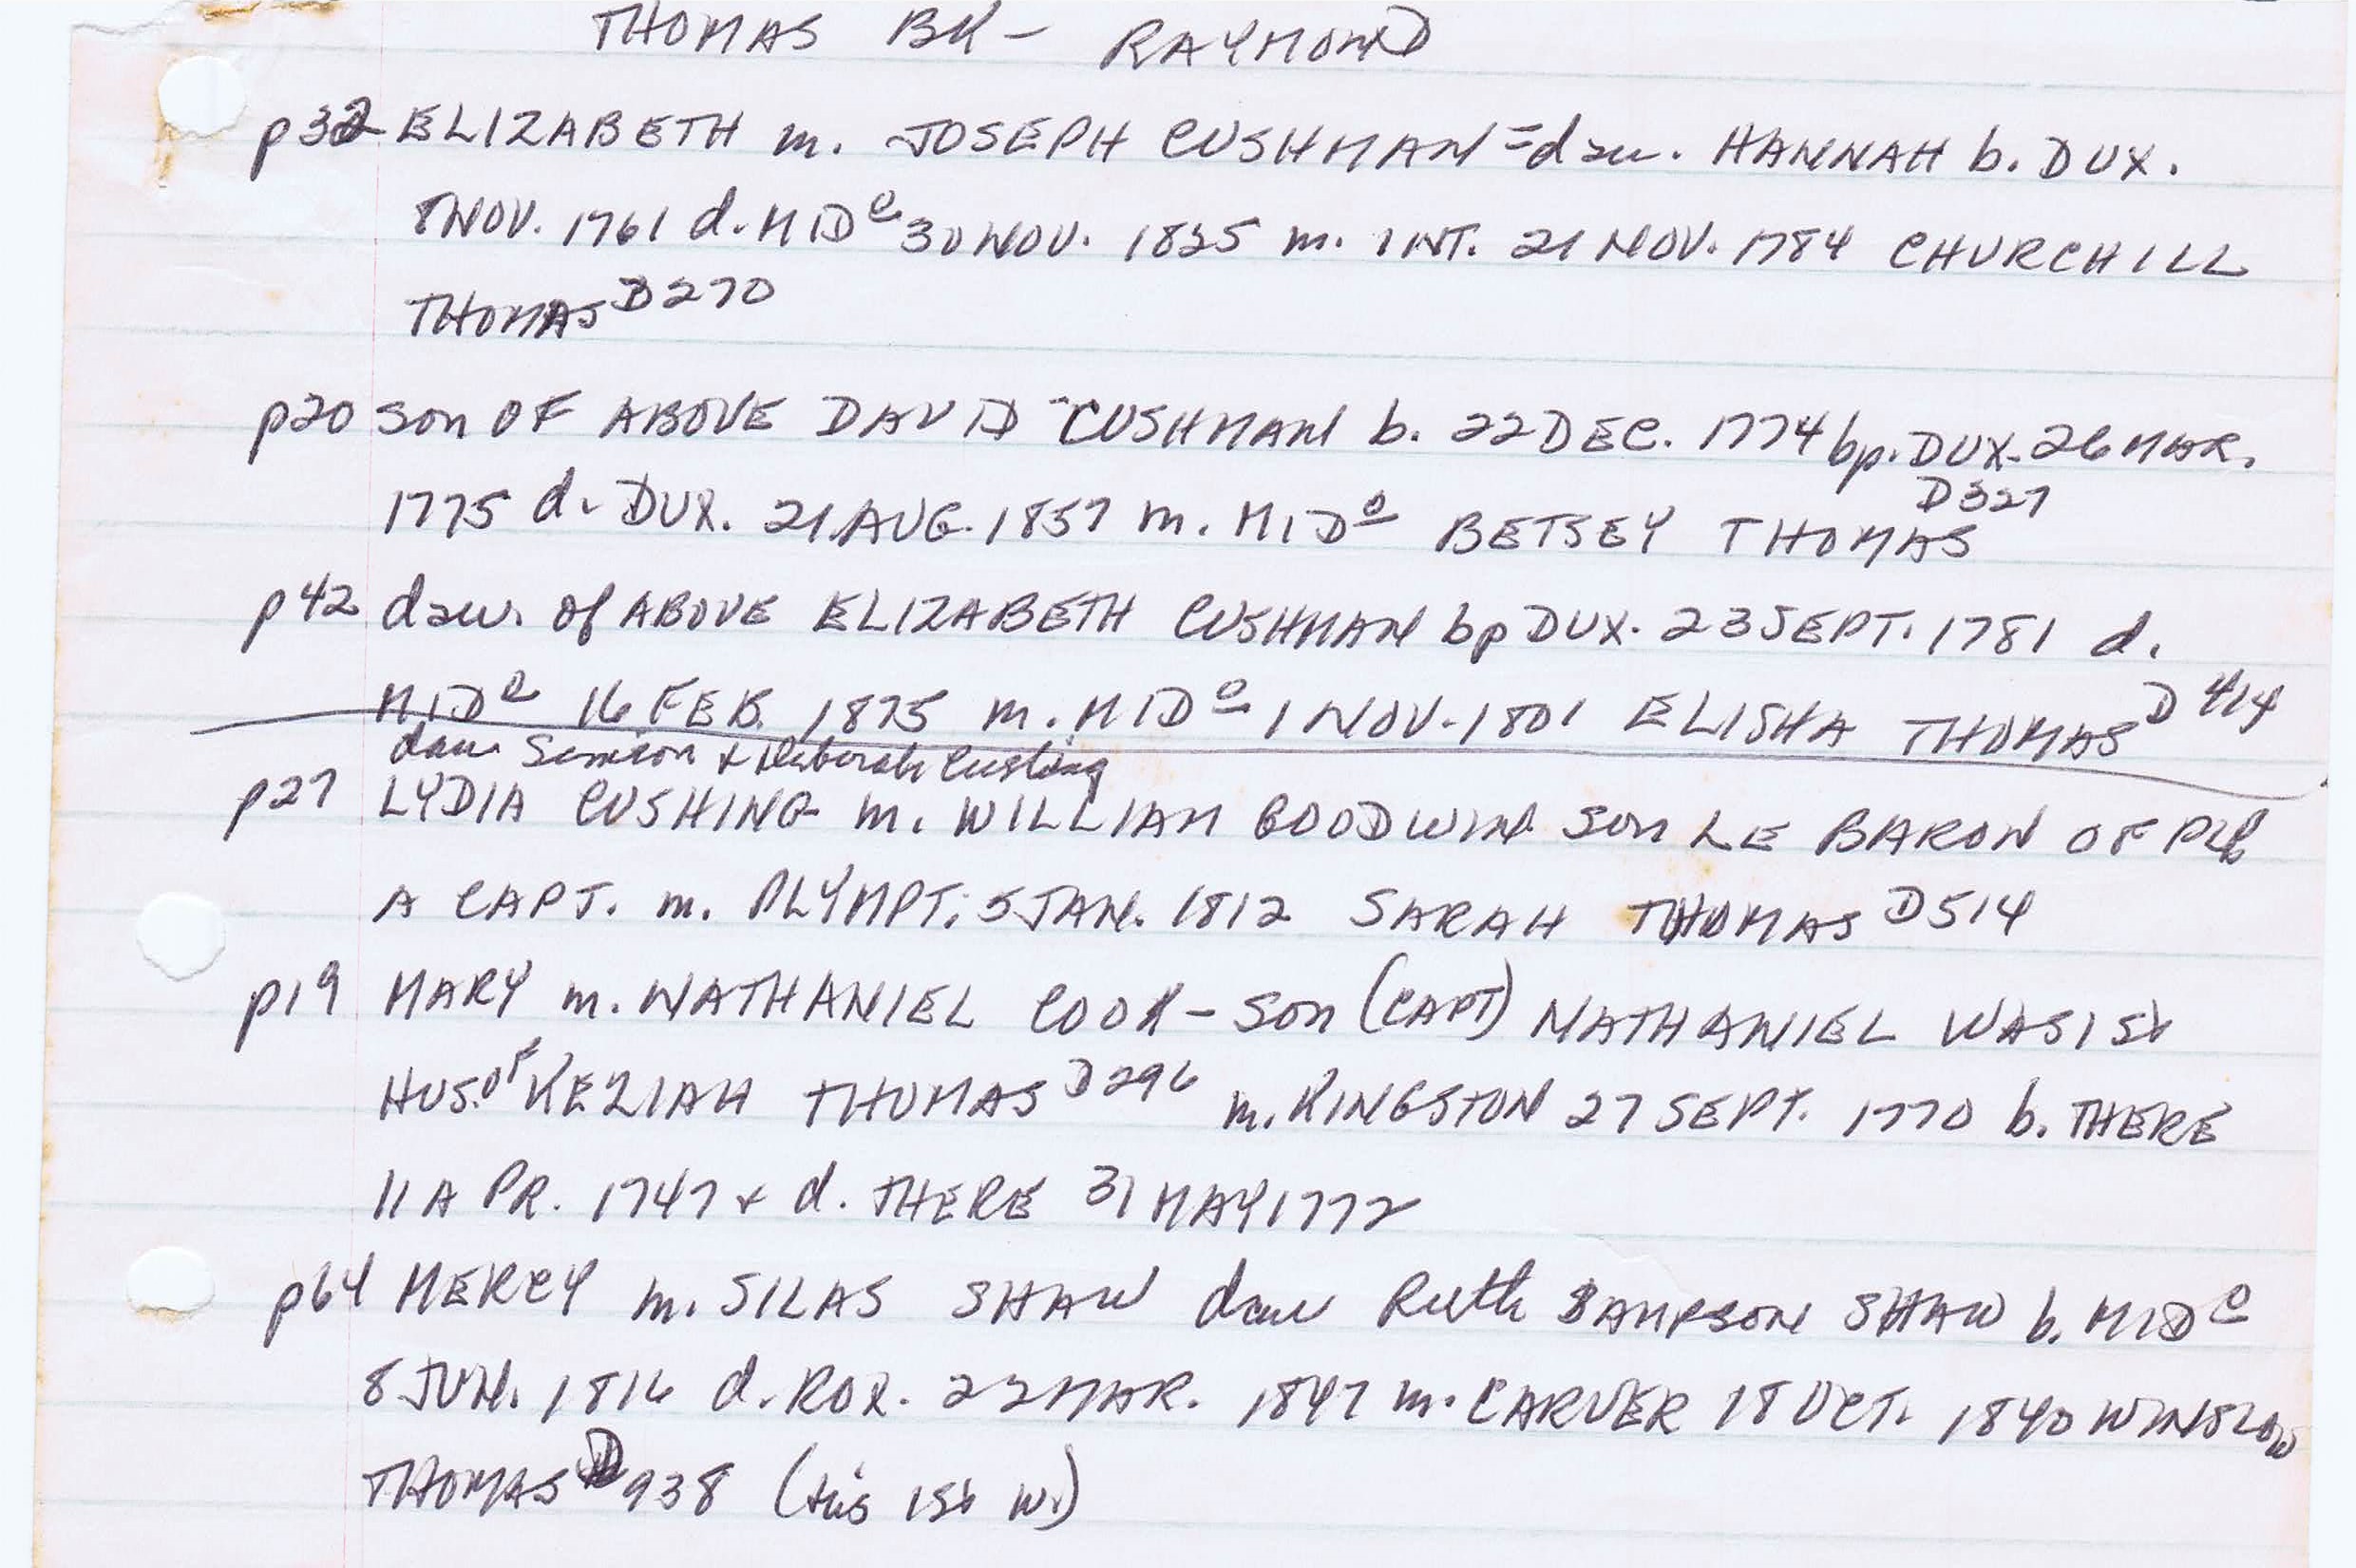 THOMAS BK – RAYMOND
p32 ELIZABETH m. JOSEPH CUSHMAN = dau. HANNAH b. DUX.
8 NOV. 1761 d. MIDᵒ 30 NOV. 1825 m. INT. 21 NOV. 1784 CHURCHILL
THOMAS D270
p20 son OF ABOVE DAVID CUSHMAN b. 22 DEC. 1774 bp. DUX. 26 MAR.
1775 d. DUX. 21 AUG. 1857 m. MIDᵒ BETSEY THOMAS D327
p42 dau. of ABOVE ELIZABETH CUSHMAN bp DUX. 23 SEPT. 1781 d.
MIDᵒ 16 FEB. 1875 m. MIDᵒ 1 NOV. 1801 ELISHA THOMAS D 414
dau Simeon & Deborah Cushing
p27 LYDIA CUSHING m. WILLIAM GOODWIN son LE BARON OF
A CAPT. m. PLYMPT. 5 JAN. 1812 SARAH THOMAS D514
p19 MARY m. NATHANIEL COOK – son (CAPT) NATHANIEL WAS 1st
HUS. OF KEZIAH THOMAS D296 m. KINGSTON 27 SEPT. 1770 b. THERE
11 APR. 1747 & d. THERE 31 MAY 1772
p64 MERCY m. SILAS SHAW dau Ruth SAMPSON SHAW b. MIDᵒ
8 JUN. 1816 d. ROX. 22 MAR. 1847 m. CARVER 18 OCT. 1840 WINSLOW
THOMAS D938 (his 1st w.)